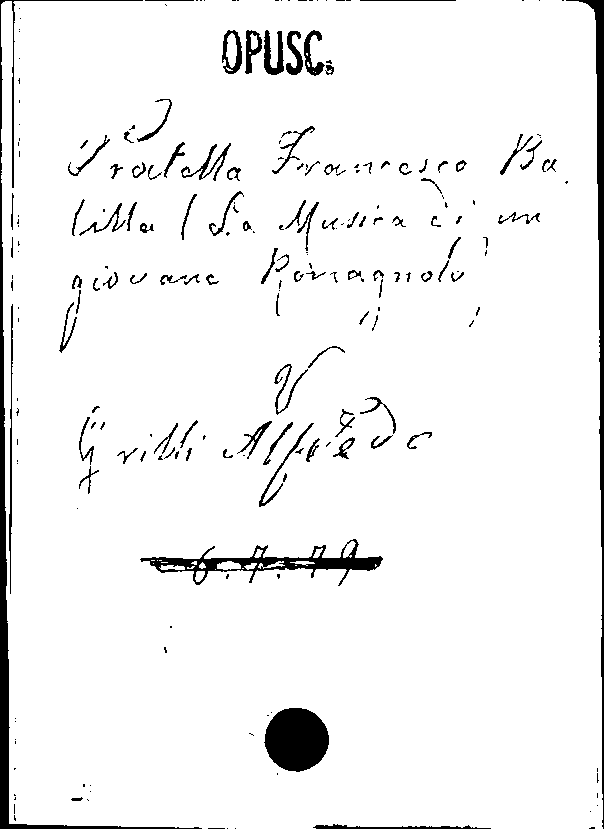 OPUSC.
Pratella Francesco Ba.
lilla (La Musica di un
giovane Romagnolo)
V
Grilli Alfredo
6.7.79